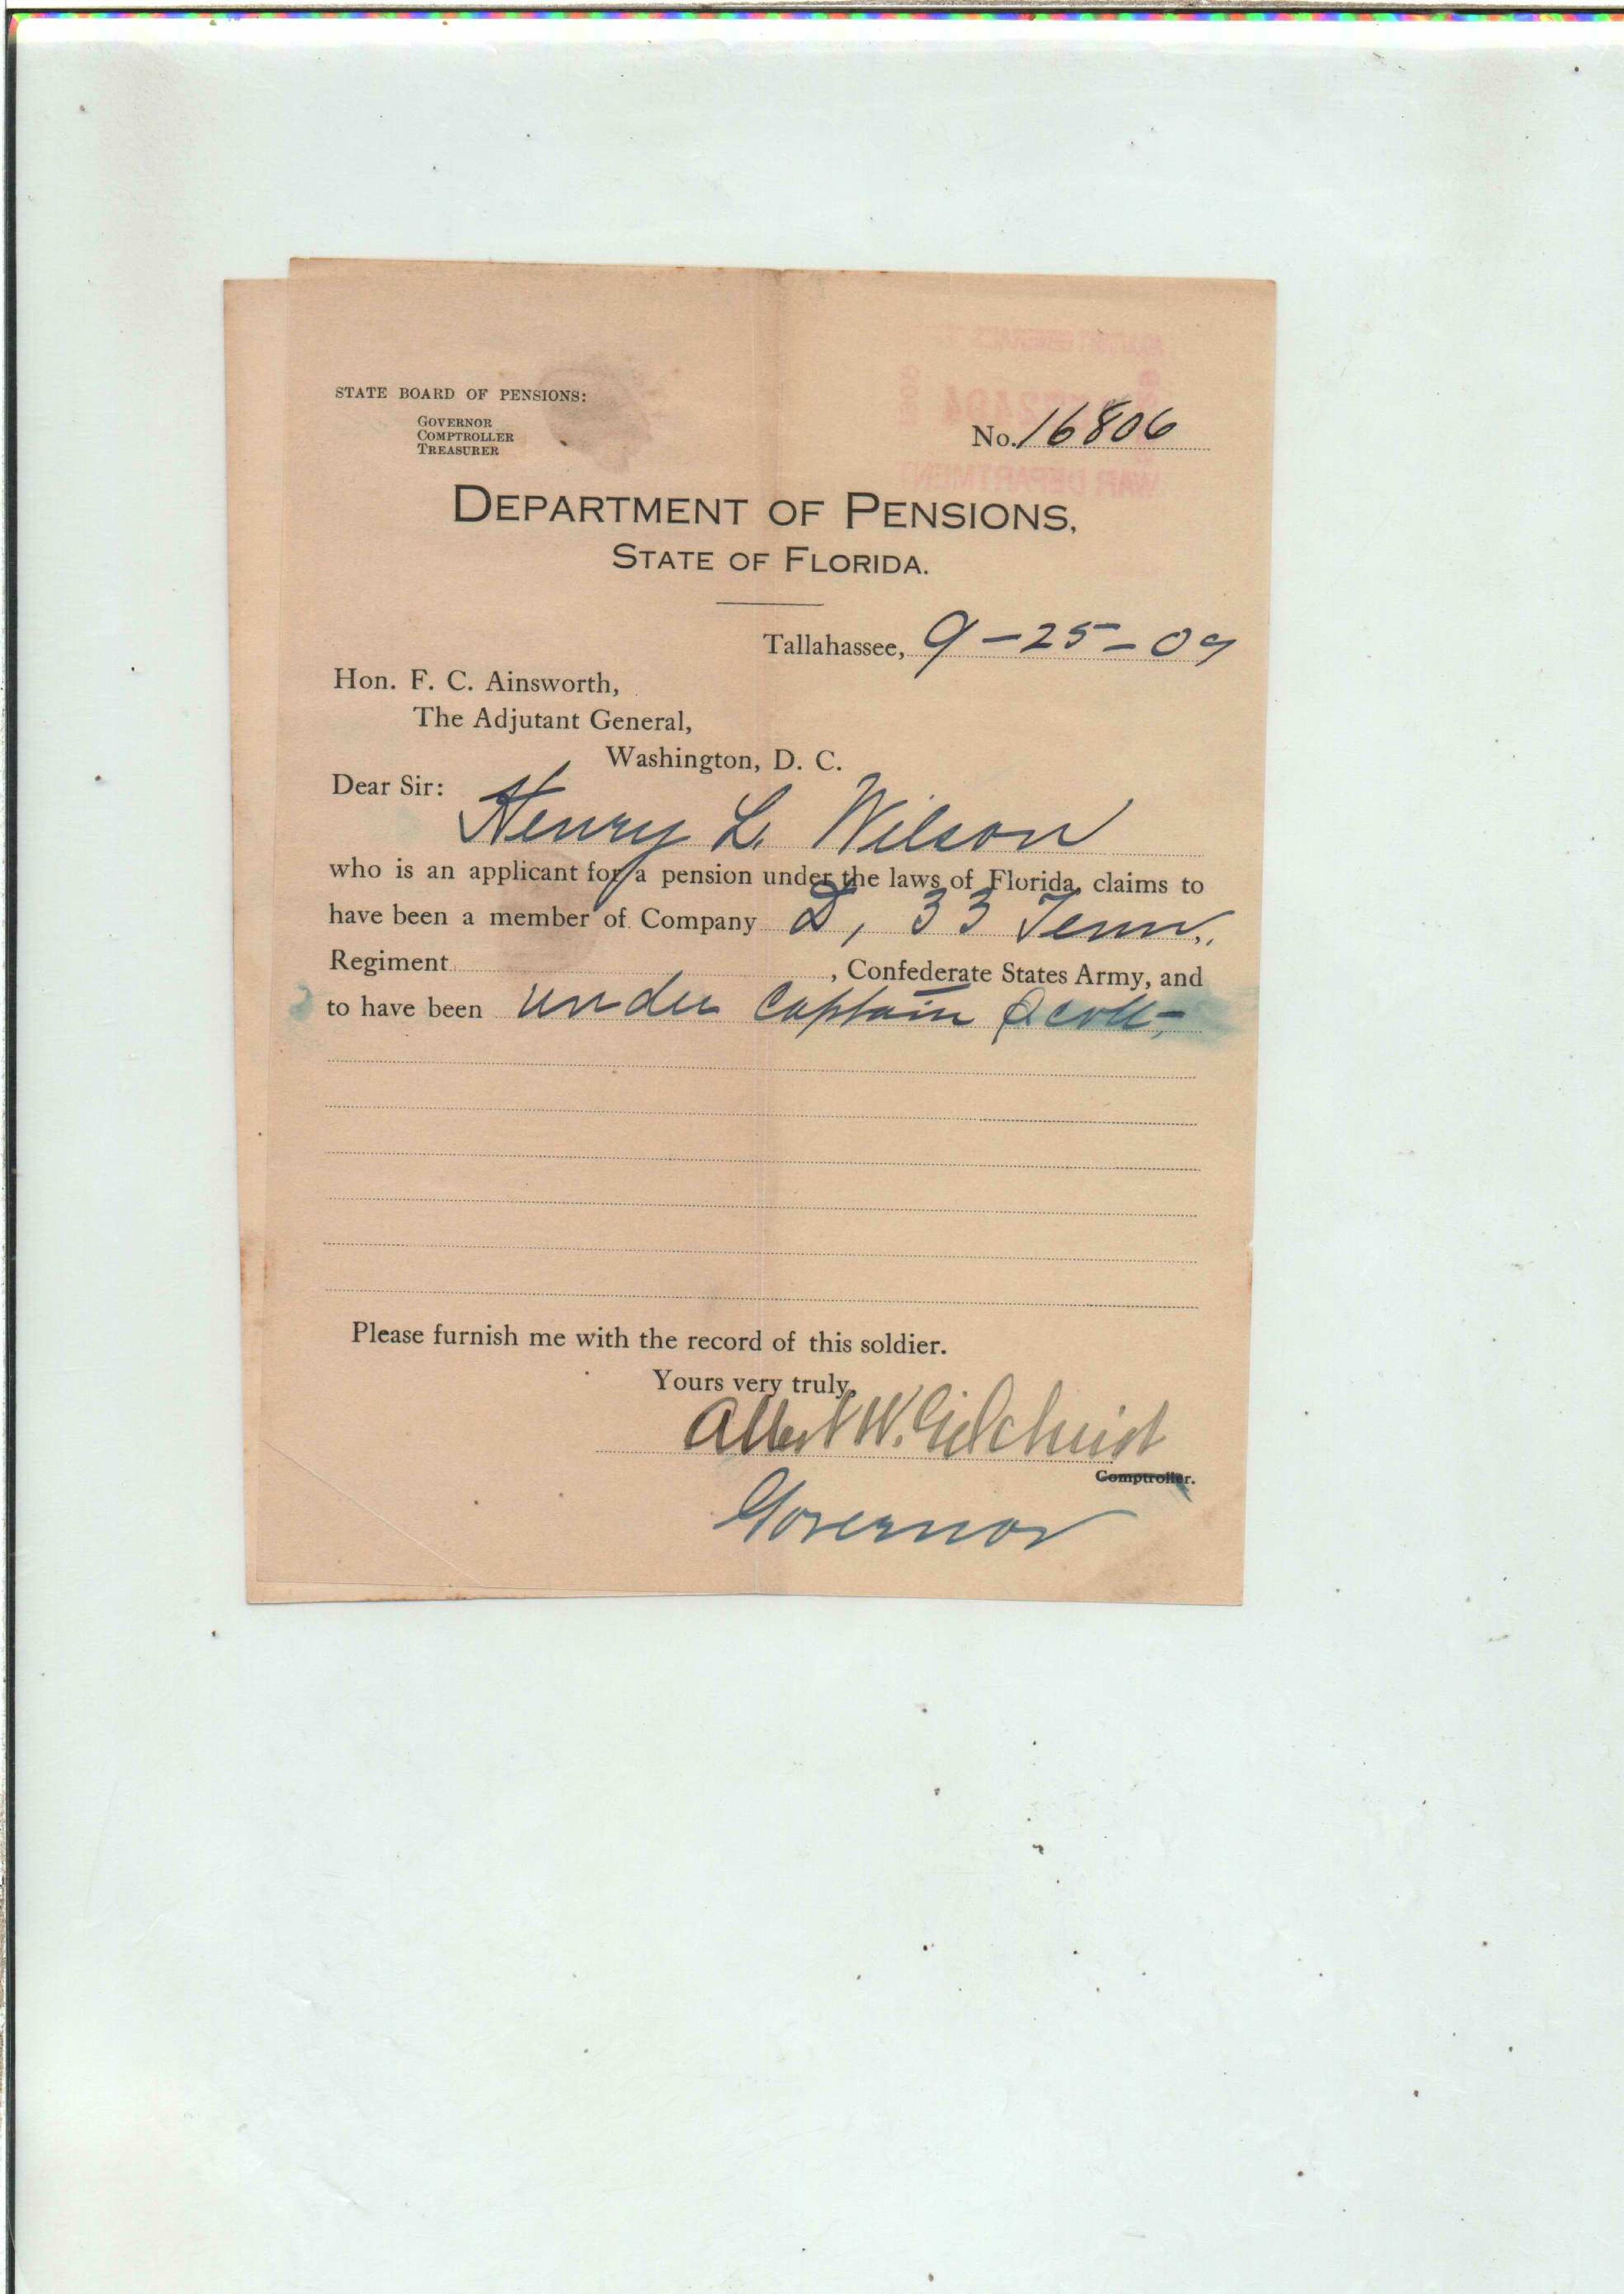 STATE BOARD OF PENSIONS:
GOVERNOR
COMPTROLLER
TREASURER
No. 16806
WAR DEPARTMENT
DEPARTMENT OF PENSIONS,
STATE OF FLORIDA.
Tallahassee, 9-25-09
Hon. F. C. Ainsworth,
The Adjutant General,
Washington, D. C.
Dear Sir:
Henry L. Wilson
who is an applicant for a pension under the laws of Florida, claims to
have been a member of Company D, 33 Tenn.
Regiment , Confederate States Army, and
to have been under Captain Scott,
Please furnish me with the record of this soldier.
Yours very truly,
Albert W. Gilchrist
Comptroller.
Governor